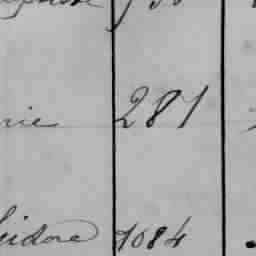 nie 281
sidore 1084